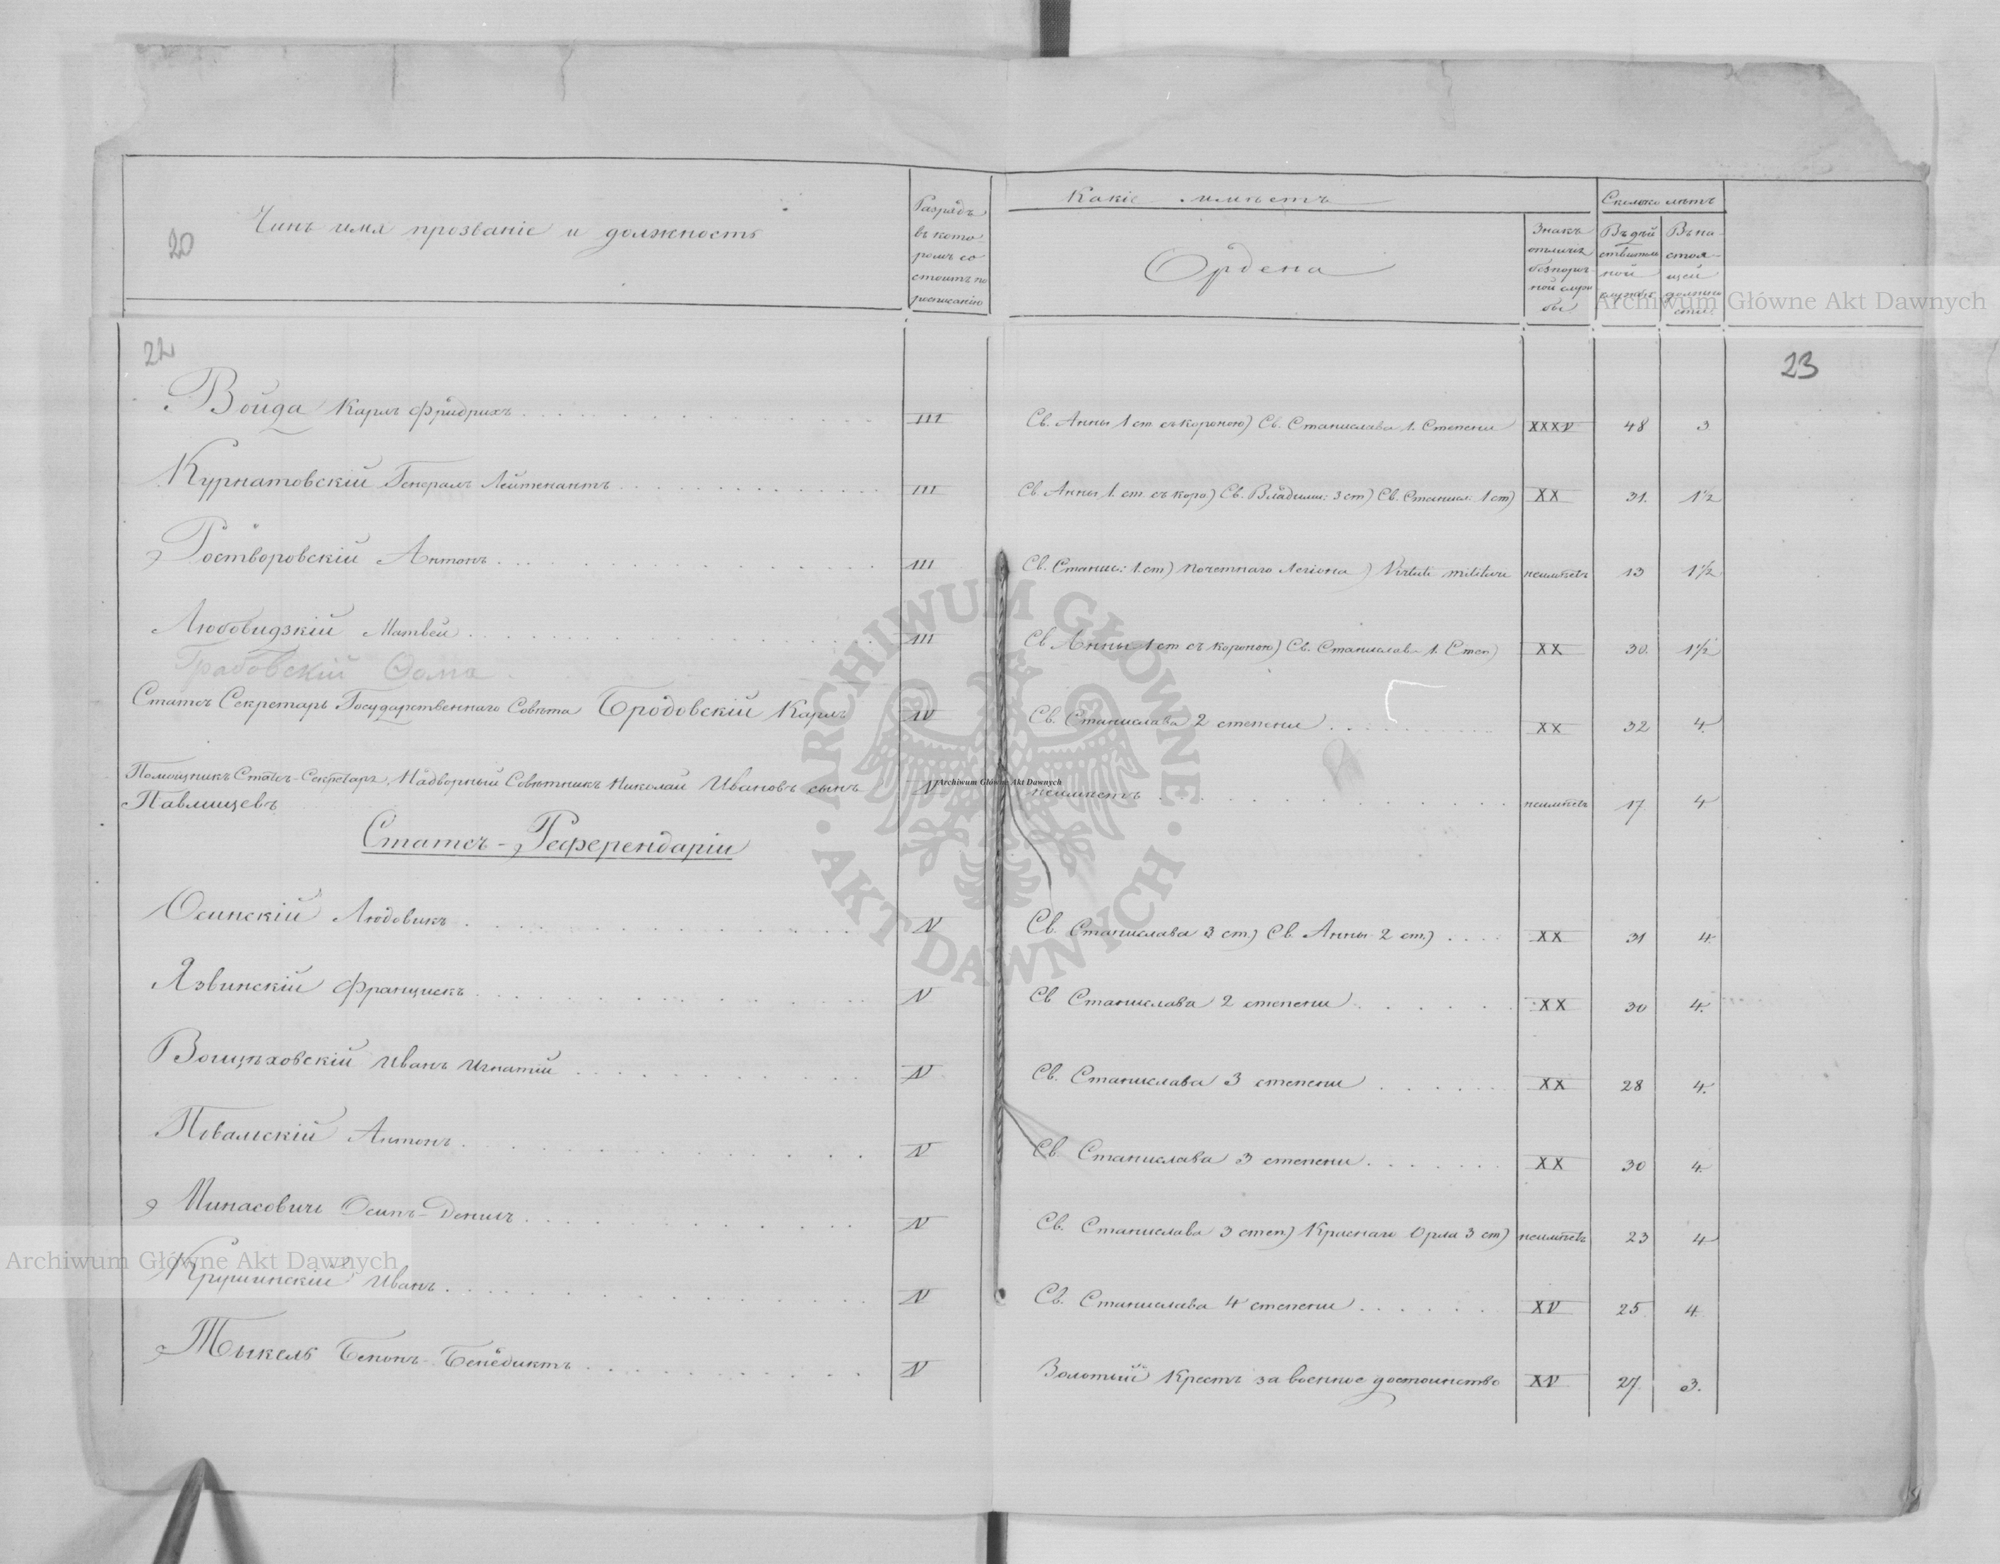 20
Чинъ имя прозваніе и должность
Разрядъ
въ кото
ромъ со
стоитъ по
росписанію
Какіе имѣетъ
Ордена
Знакъ
отличія
безпороч-
ной служ
бы
Сколько лѣтъ
Въ дѣй
ствитель
ной
службѣ
Въ на
стоя-
щей
должно
сти
Archiwum Główne Akt Dawnych
22
23
Войда Карлъ Фридрихъ III Св. Анны 1 ст. съ короною) Св. Станислава 1. Степени XXXV 48 3
Курнатовскій Генералъ Лейтенантъ III Св. Анны 1. ст. съ коро.) Св. Владими: 3 ст) Св. Станисл: 1 ст) XX 31. 1½
Ростворовскій Антонъ III Св. Станис.: 1. ст) Почетнаго Легіона) Virtuti militari неимѣетъ 13 1½
Любовидзкій Матвей III Св. Анны 1 ст съ короною) Св. Станислава 1. Степ) XX 30 1½
Грабовскій Ѳома
Статсъ Секретарь Государственнаго Совѣта Бродовскій Карлъ IV Св. Станислава 2 степени) XX 32 4
Помощникъ Статсъ-Секретаря, Надворный Совѣтникъ Николай Ивановъ сынъ
Павлищевъ V неимѣетъ неимѣетъ 17 4
Статсъ-Референдаріи
Осинскій Людовикъ V Св. Станислава 3 ст.) Св. Анны 2 ст.) XX 31 4.
Язвинскій Францискъ V Св. Станислава 2 степени XX 30 4.
Воицѣховскій Иванъ Игнатій V Св. Станислава 3 степени XX 28 4.
Повальскій Антонъ V Св. Станислава 3 степени XX 30 4.
Минасовичъ Осипъ-Денисъ V Св. Станислава 3 степ) Краснаго Орла 3 ст) неимѣетъ 23 4
Крушинскій Иванъ V Св. Станислава 4 степени XV 25 4.
Тыкель Бенонъ-Бенедиктъ V Золотый Крестъ за военное достоинство XV 27. 3.
ARCHIWUM GŁÓWNE
AKT DAWNYCH
Archiwum Główne Akt Dawnych
Archiwum Główne Akt Dawnych